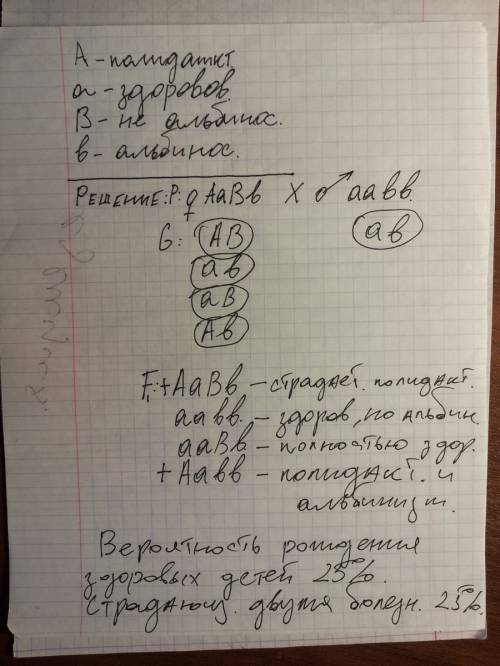 А – полидакт
а – здоровов.
В – не альбинос.
в – альбинос.
Решение: P: ♀ АаВв X ♂ аавв.
G: АВ ав
ав
аВ
Ав
F₁: + АаВв – страдает. полидакт.
аавв. – здоров, но альбин.
ааВв – полностью здор.
+ Аавв – полидакт. и
альбинизм.
Вероятность рождения
здоровых детей 25%.
Страдающ. двумя болезн. 25%.